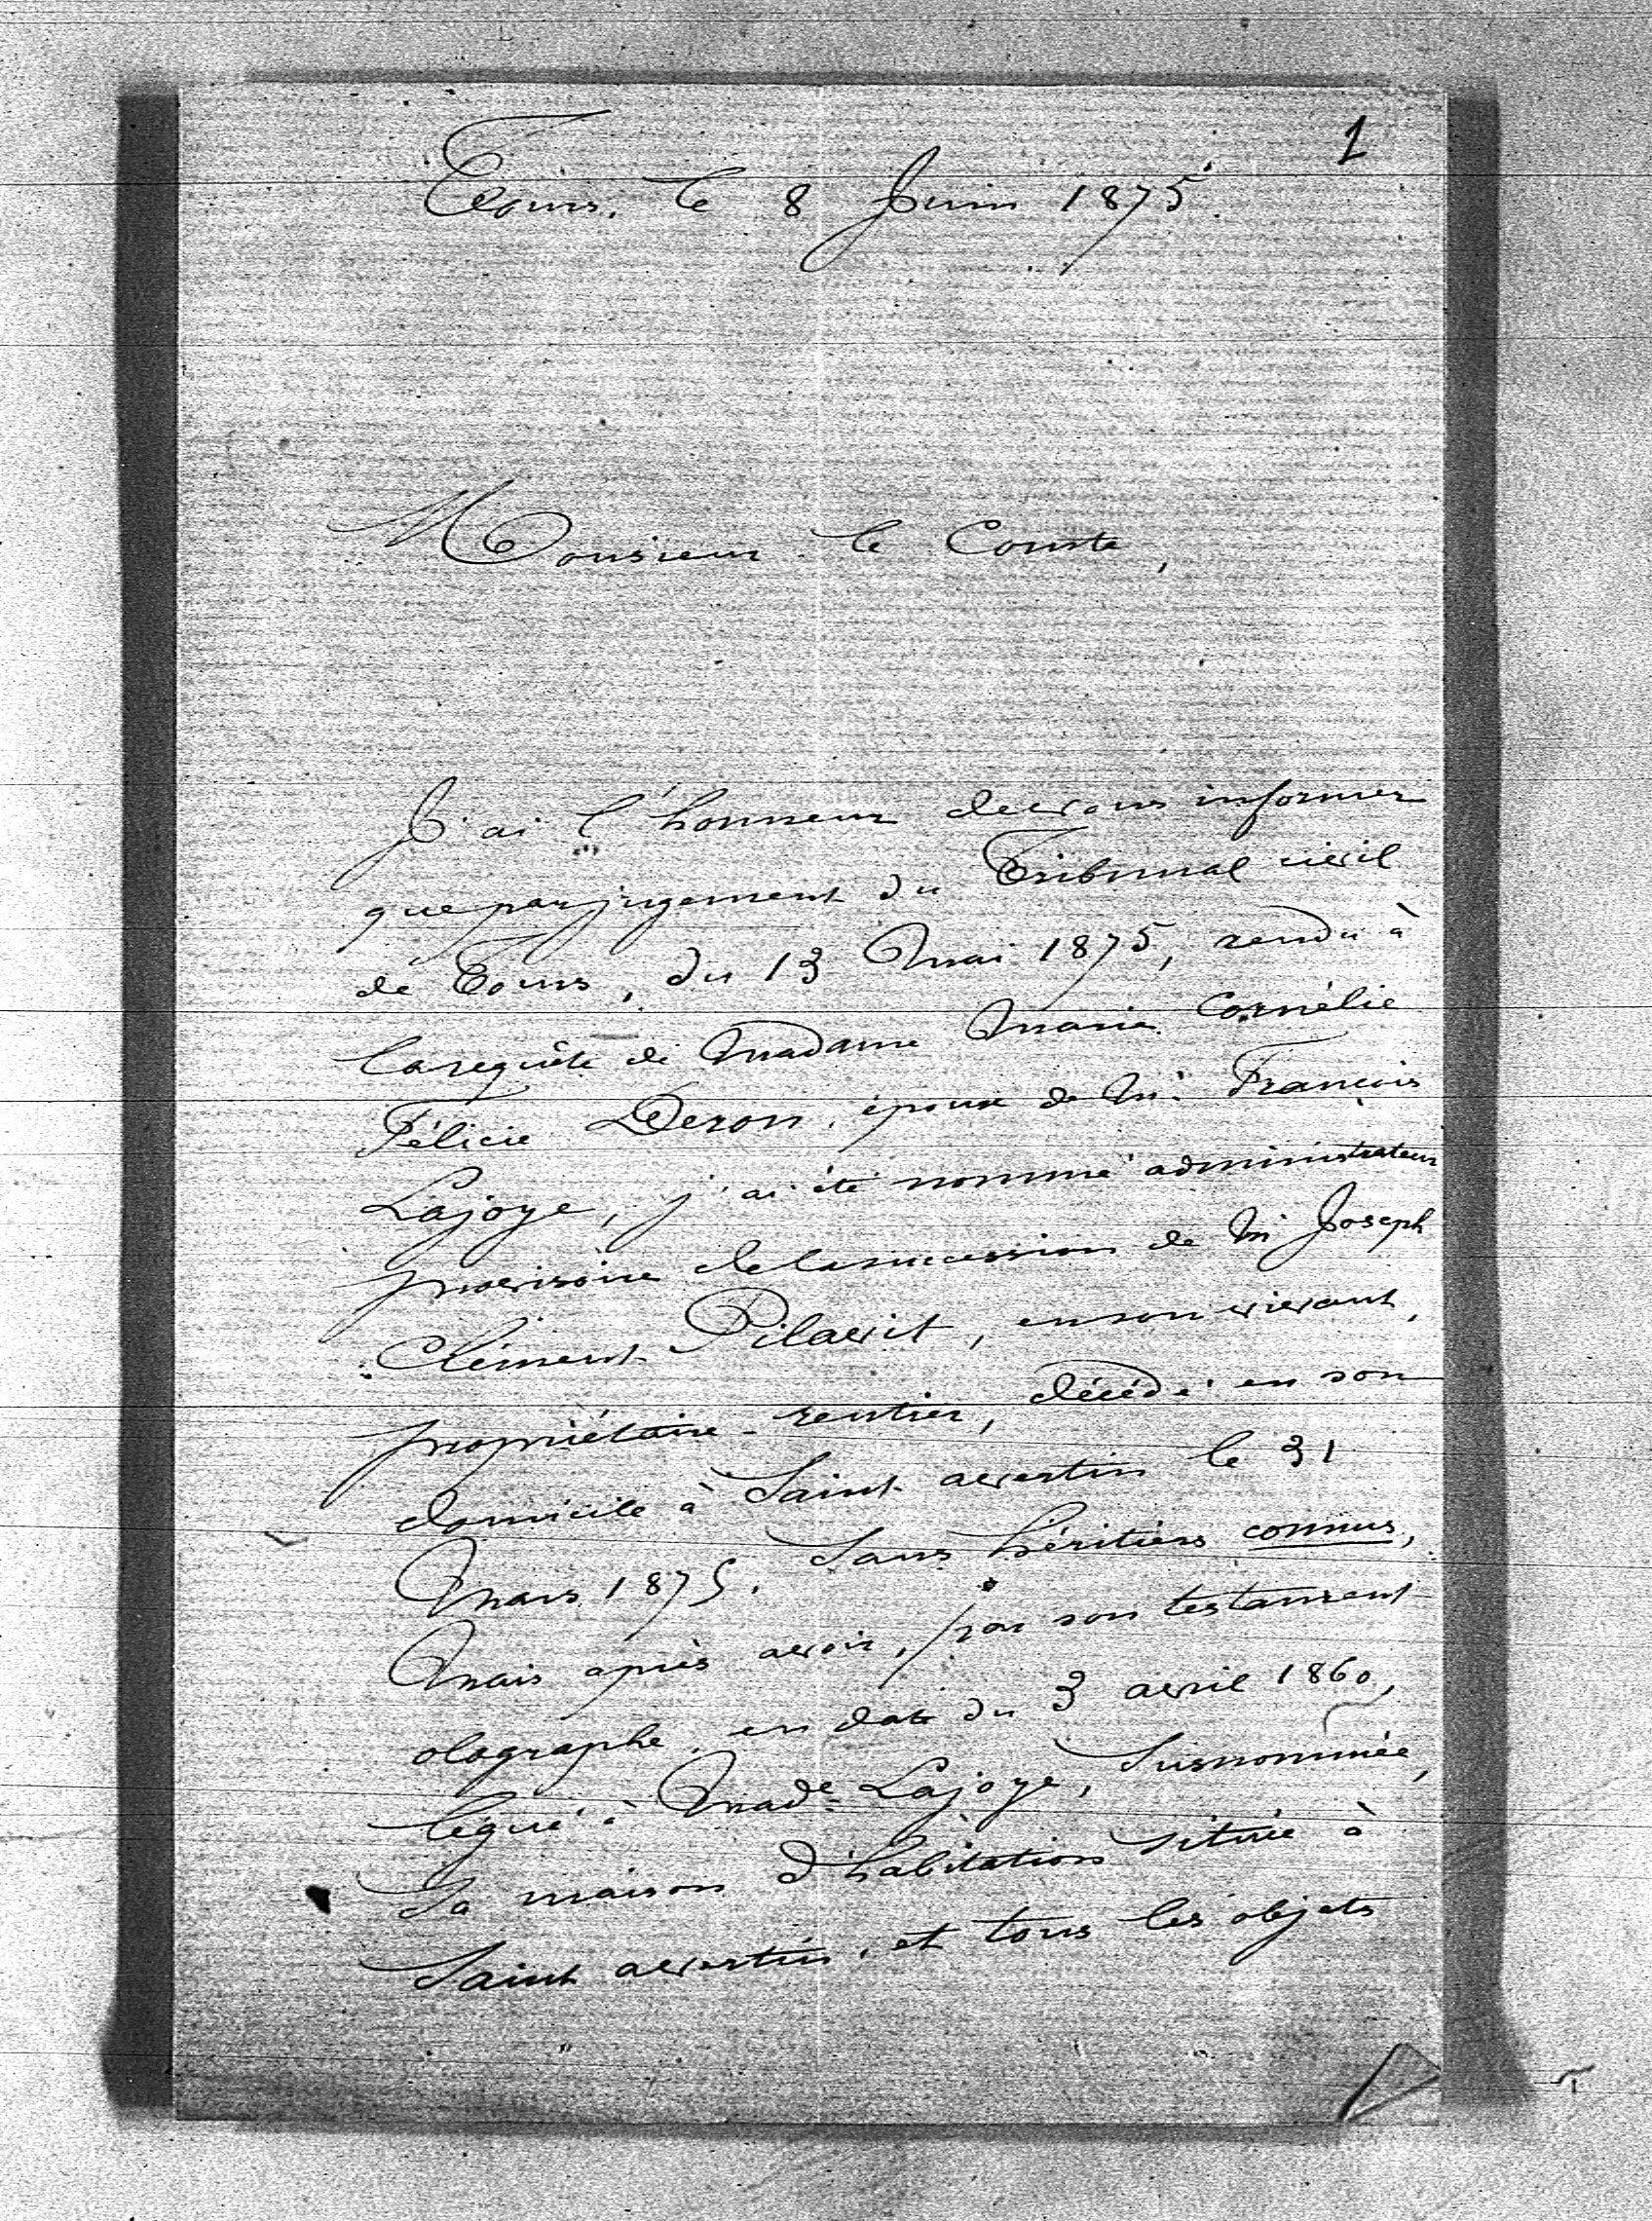 1
Tours, le 8 Juin 1875.
Monsieur le Comte,
J'ai l'honneur de vous informer
que par jugement du Tribunal civil
de Tours, du 13 Mai 1875, rendu à
la requête de Madame Marie Cornélie
Félicie Deron, épouse de M. François
Lajoye, j'ai été nommé administrateur
provisoire de la succession de M Joseph
Clément Pilavit, en son vivant,
propriétaire-rentier, décédé en son
domicile à Saint avertin le 31
Mars 1875. Sans héritiers connus,
Mais après avoir, par son testament
olographe, en date du 3 avril 1860,
légué à Made Lajoye, Susnommée,
Sa maison d'habitation située à
Saint avertin, et tous les objets